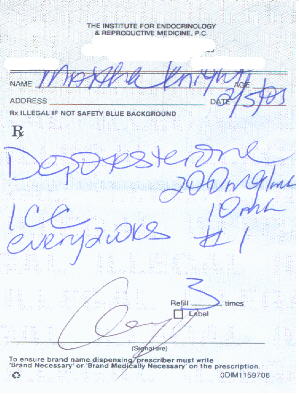 THE INSTITUTE FOR ENDOCRINOLOGY
& REPRODUCTIVE MEDICINE, P.C.
NAME Martha Knight AGE
ADDRESS DATE 2/5/03
Rx ILLEGAL IF NOT SAFETY BLUE BACKGROUND
Rx
Depotesterone
200mg/mL
1cc 10mL
every 2 wks #1
Refill 3 times
Label
(Signature)
To ensure brand name dispensing, prescriber must write
'Brand Necessary' or 'Brand Medically Necessary' on the prescription.
0DIM1159706